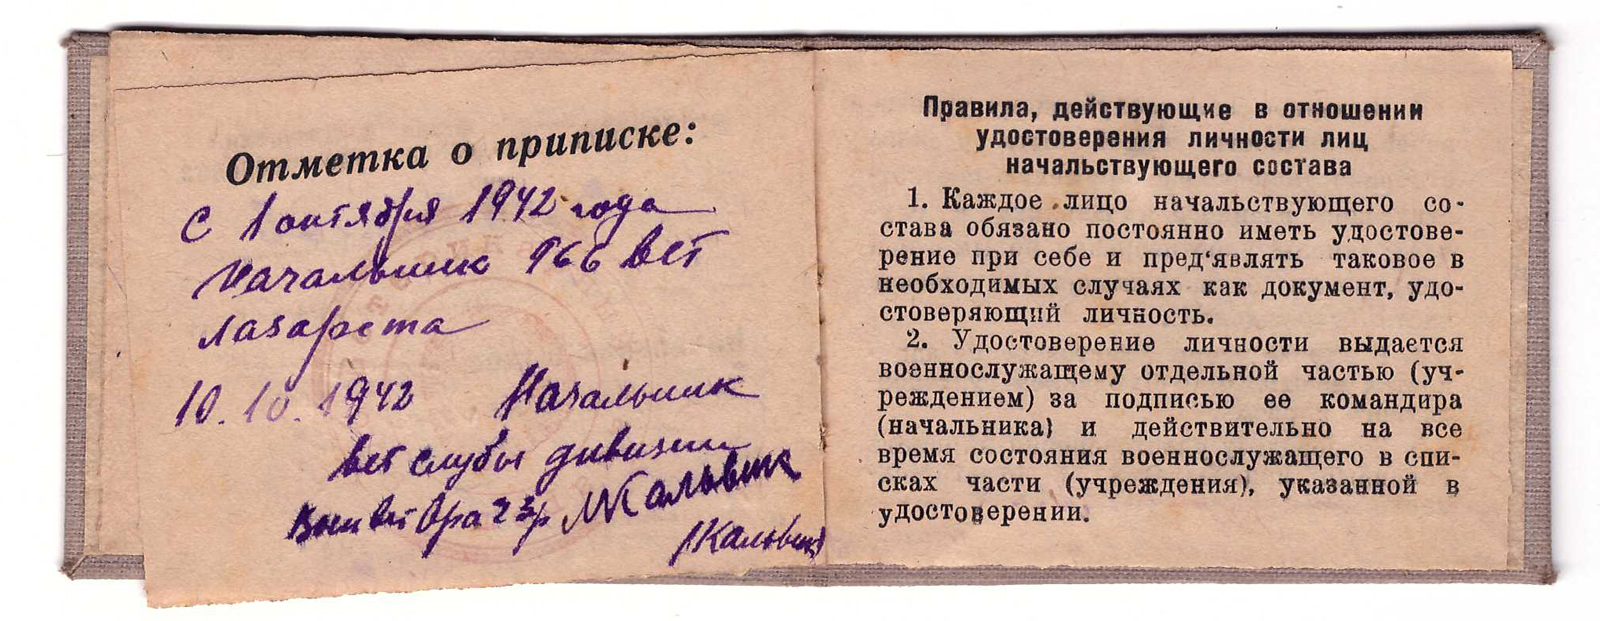 Отметка о приписке:
С 1 октября 1942 года
Начальник 966 вет
лазарета
10.10.1942 Начальник
вет службы дивизии
Воен вет врач 2 р Кальвик
/Кальвик/
Правила, действующие в отношении
удостоверения личности лиц
начальствующего состава
1. Каждое лицо начальствующего со-
става обязано постоянно иметь удостове-
рение при себе и пред‘являть таковое в
необходимых случаях как документ, удо-
стоверяющий личность.
2. Удостоверение личности выдается
военнослужащему отдельной частью (уч-
реждением) за подписью ее командира
(начальника) и действительно на все
время состояния военнослужащего в спи-
сках части (учреждения), указанной в
удостоверении.